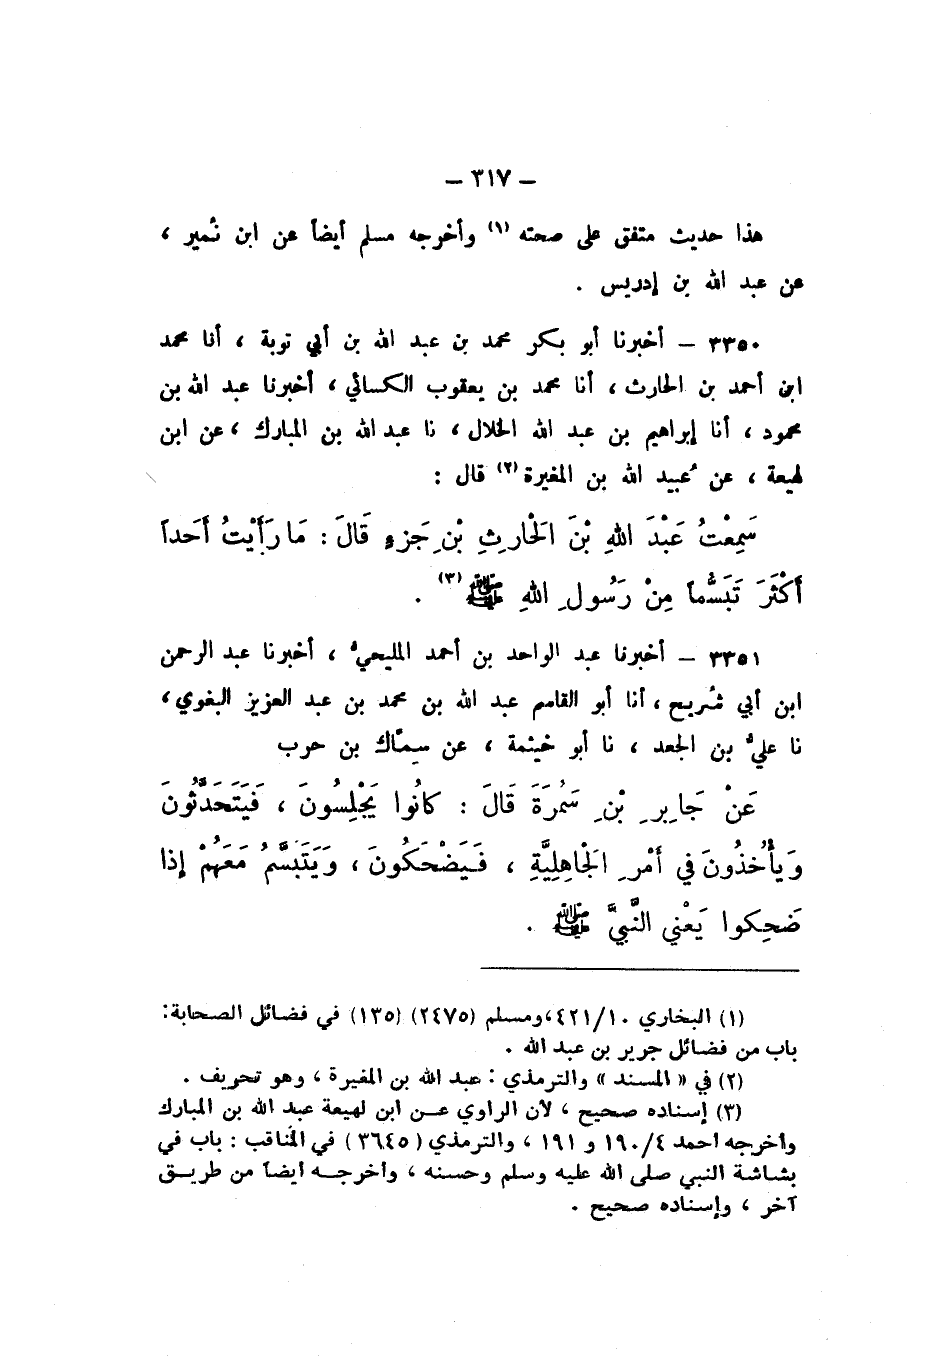 - ٣١٧ -
هذا حديث متفق على صحته (١) وأخرجه مسلم أيضاً عن ابن نُمير ،
عن عبد الله بن إدريس .
٣٣٥٠ - أخبرنا أبو بكر محمد بن عبد الله بن أبي توبة ، أنا محمد
ابن أحمد بن الحارث ، أنا محمد بن يعقوب الكسائي ، أخبرنا عبد الله بن
محمود ، أنا إبراهيم بن عبد الله الخلال ، نا عبد الله بن المبارك ، عن ابن
لهيعة ، عن عُبيد الله بن المغيرة (٢) قال :
سَمِعْتُ عَبْدَ اللهِ بْنَ الْحَارِثِ بْنِ جَزءٍ قَالَ : مَا رَأَيْتُ أَحَداً
أَكْثَرَ تَبَسُّماً مِنْ رَسُولِ اللهِ ﷺ (٣) .
٣٣٥١ - أخبرنا عبد الواحد بن أحمد المليحيُّ ، أخبرنا عبد الرحمن
ابن أبي شُريح ، أنا أبو القاسم عبد الله بن محمد بن عبد العزيز البغوي ،
نا عليُّ بن الجعد ، نا أبو خيثمة ، عن سِمَاك بن حرب
عَنْ جَابِرِ بْنِ سَمُرَةَ قَالَ : كَانُوا يَجْلِسُونَ ، فَيَتَحَدَّثُونَ
وَيَأْخُذُونَ فِي أَمْرِ الْجَاهِلِيَّةِ ، فَيَضْحَكُونَ ، وَيَتَبَسَّمُ مَعَهُمْ إِذَا
ضَحِكوا يَعْنِي النَّبِيَّ ﷺ .
(١) البخاري ٤٢١/١٠،ومسلم (٢٤٧٥) (١٣٥) في فضائل الصحابة:
باب من فضائل جرير بن عبد الله .
(٢) في « المسند » والترمذي : عبد الله بن المغيرة ، وهو تحريف .
(٣) إسناده صحيح ، لأن الراوي عن ابن لهيعة عبد الله بن المبارك
وأخرجه أحمد ١٩٠/٤ و ١٩١ ، والترمذي (٣٦٤٥) في المناقب : باب في
بشاشة النبي صلى الله عليه وسلم وحسنه ، وأخرجه أيضاً من طريق
آخر ، وإسناده صحيح .